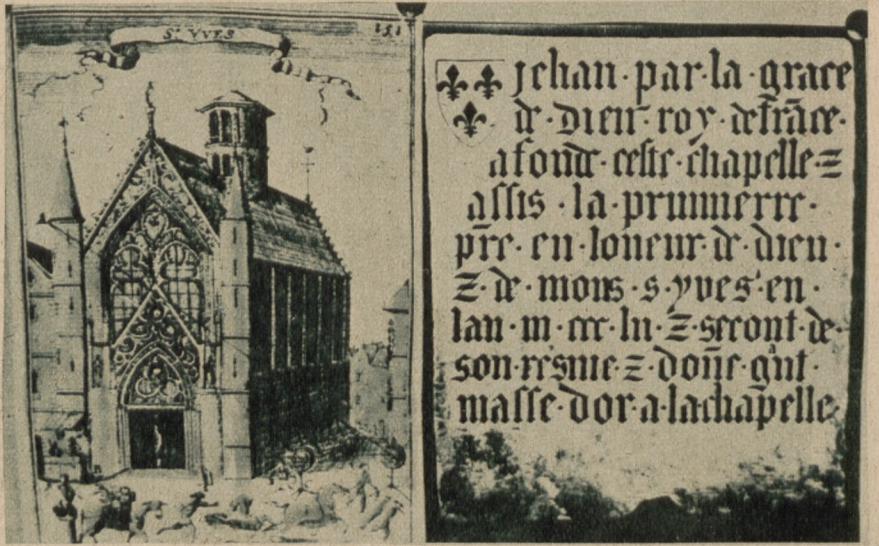 S. YVES
151
jehan · par · la · grace
de · dieu · roy · de frāce ·
a fonde · ceste · chapelle z
assis · la · prumierre ·
pr̄e · en · loneur · de · dieu ·
z · de · mons · s · yves · en ·
lan · m · ccc · lii · z · seront · de ·
son · resne z · done · qnt
masse · dor · a · la chapelle